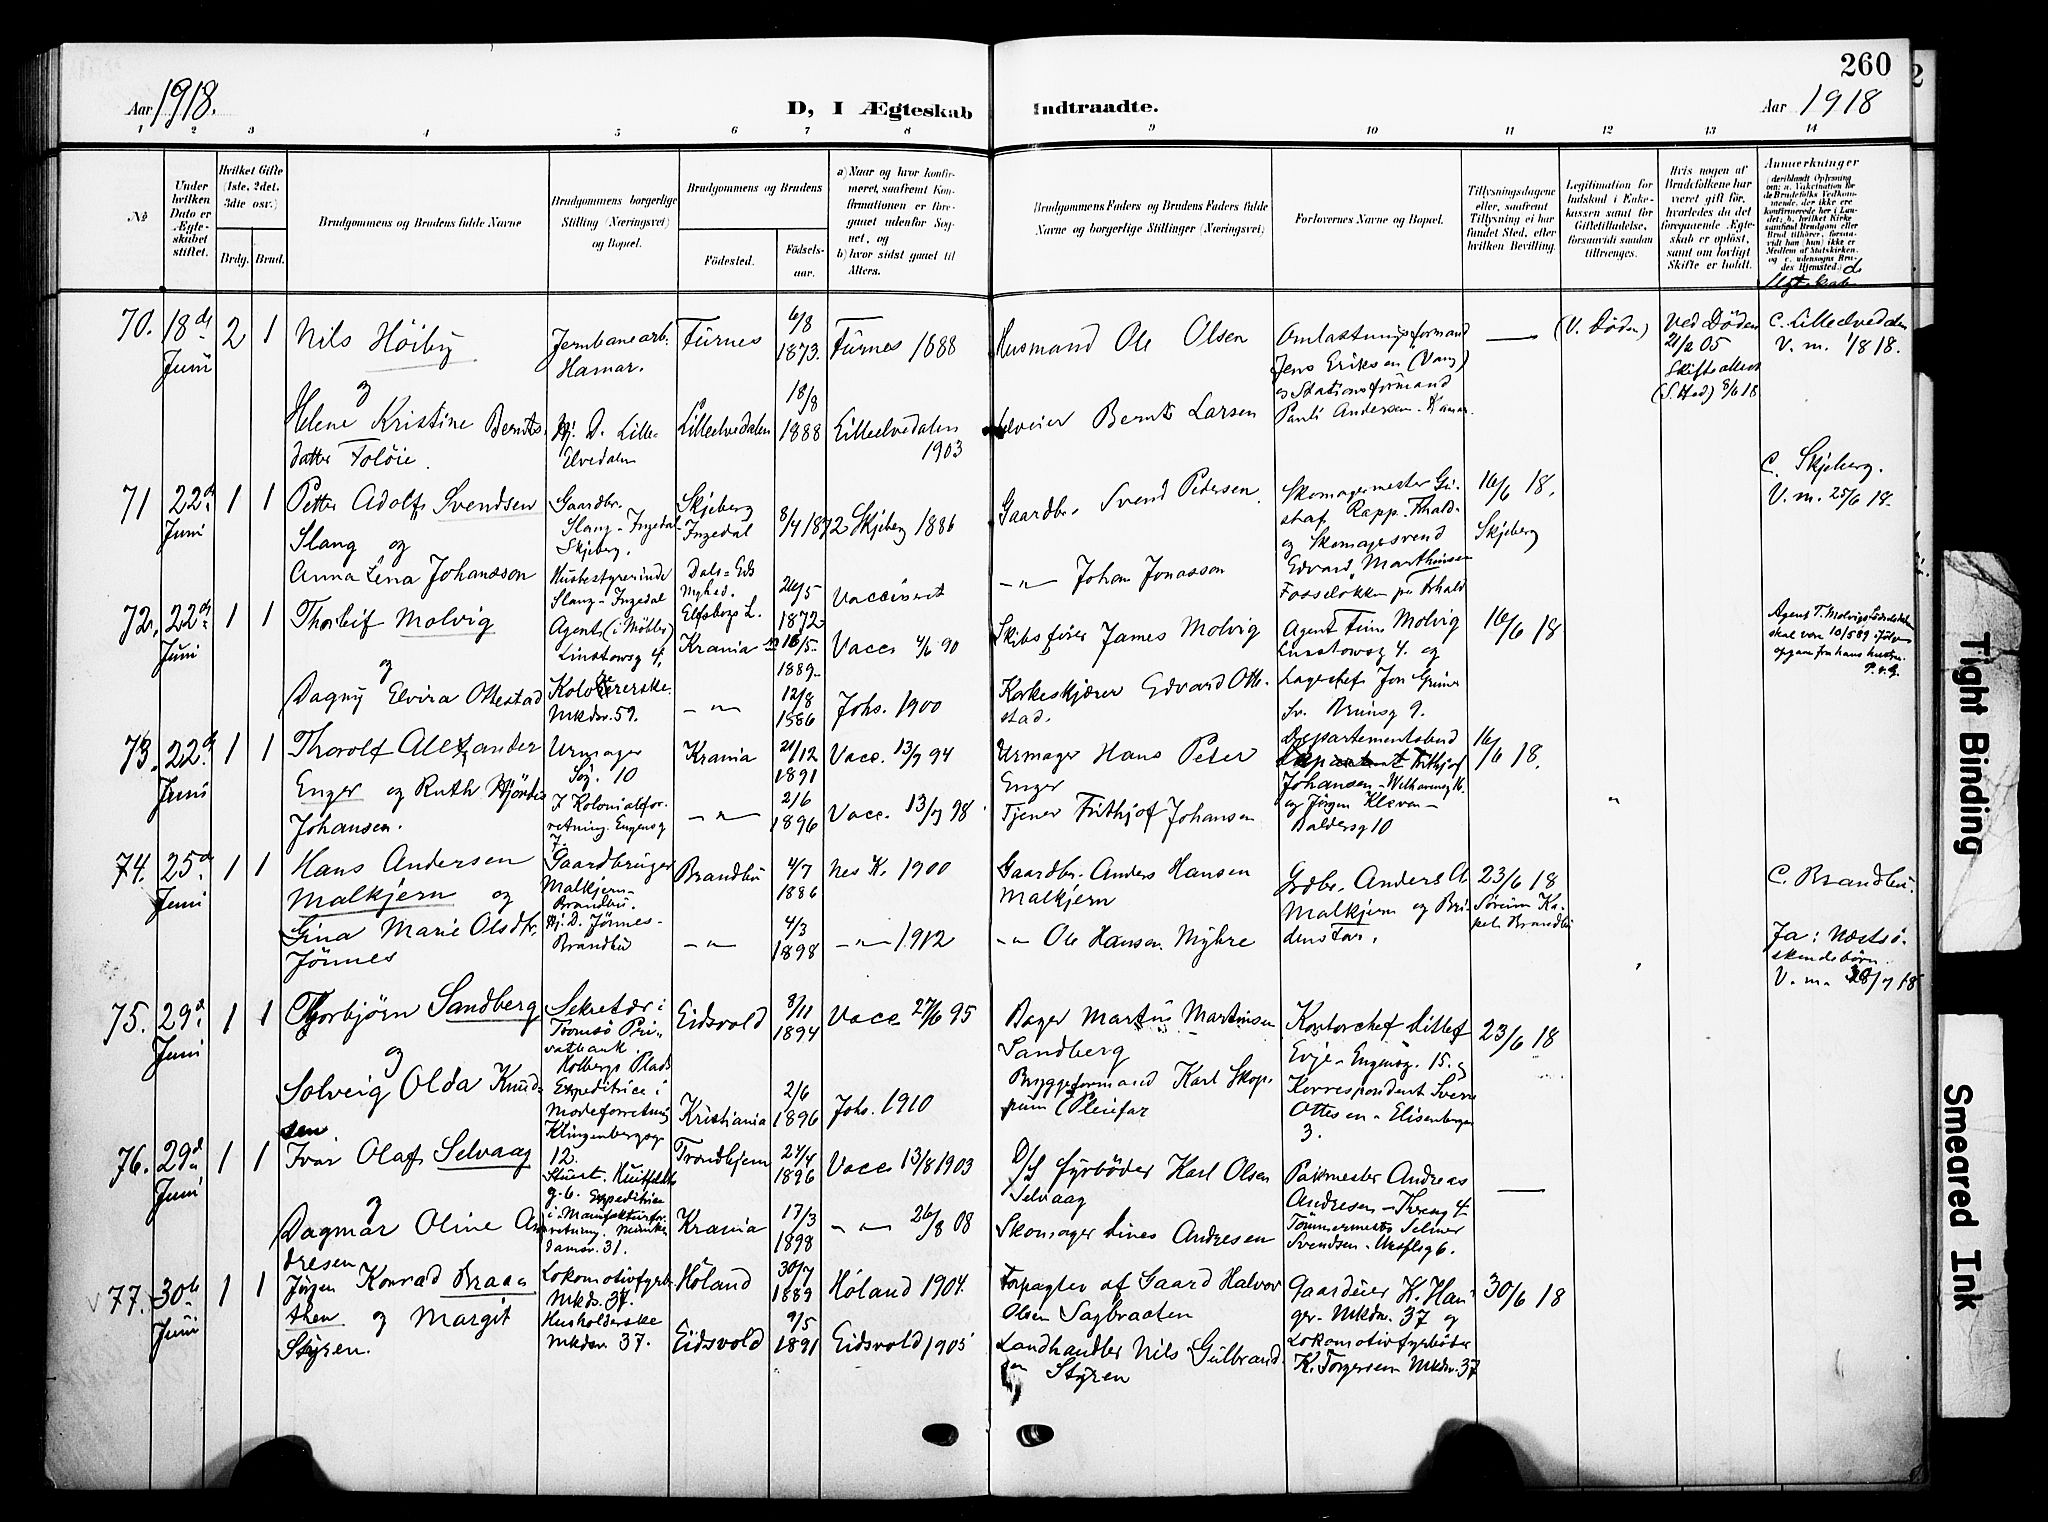 260
Aar 1918.
D, I Ægteskab Indtraadte.
Aar 1918
1 2 3 4 5 6 7 8 9 10 11 12 13 14
No
Under hvilken Dato er Ægteskabet stiftet.
Hvilket Gifte (1ste, 2det, 3dte osv.)
Brdg. Brud.
Brudgommens og Brudens fulde Navne
Brudgommens borgerlige Stilling (Næringsvei) og Bopæl.
Brudgommens og Brudens
Födested.
Födselsaar.
a) Naar og hvor konfirmeret, saafremt Konfirmationen er foregaaet udenfor Sognet, og
b) hvor sidst gaaet til Alters.
Brudgommens Faders og Brudens Faders fulde Navne og borgerlige Stillinger (Næringsvei)
Forlovernes Navne og Bopæl.
Tillysningsdagene eller, saafremt Tillysning ei har fundet Sted, efter hvilken Bevilling.
Legitimation for Indskud i Enkekassen samt for Giftetilladelse, forsaavidt saadan tiltrænges.
Hvis nogen af Brudefolkene har været gift før, hvorledes da det foregaaende Ægteskab er opløst, samt om lovligt Skifte er holdt.
Anmærkninger
70. 18de Juni 2 1
Nils Höiby
og
Helene Kristine Berntsdatter Folöie.
Jernbanearb. Hamar.
Hj. D. Lille-Elvedalen
Furnes 6/8 1873. Furnes 1888
Lilleelvedalen 18/8 1888 Lilleelvedalen 1903
Husmand Ole Olsen
Selveier Bernt Larsen
Omlastningsformand Jens Eriksen (Vang) og Stationsformand Pauli Andersen - Hamar
— (V. Döden)
Ved Döden 21/2 05
Skifteattest (S. Hed) 8/6 18
C. Lilleelvedalen
V. m. 1/8 18.
71 22de Juni 1 1
Petter Adolf Svendsen
Slang og
Anna Lena Johansson
Gaardbr. Slang - Ingedal Skjeberg.
Husbestyrerinde Slang - Ingedal
Skjeberg Ingedal 8/4 1872 Skjeberg 1886
Dals-Eds Elfsborgs L. 26/5 1872 Vaccineret
Gaardbr. Svend Pedersen
—"— Johan Jonasson
Skomagermester Gustaf Rapp - Fhald - og Skomagersvend Edvard Marthinsen Fosselökken pr Frhald
16/6 18.
Skjeberg
C. Skjeberg.
V. m. 25/6 18.
72. 22de Juni 1 1
Thorleif Molvig
og
Dagny Elvira Ottestad
Agent (i Möbler) Linstowsg 4,
Mkdnv. 59.
Krania 1889. Vacc. 4/6 90
—"— 12/8 1886 Johs. 1900
Skibsförer James Molvig
Korkeskjærer Edvard Ottestad.
Agent Finn Molvig Linstowsg 4. og
Lagerchef Jon Grüner
Sv. Bruunsg 9.
16/6 18
73. 22de Juni 1 1
Thorolf Alexander
Enger og Ruth Hjördis
Johansen.
Urmager
10
I Kolonialforretning. Engensg 7.
Krania 21/12 1891 Vacc. 13/9 94
—"— 2/6 1896 Vacc. 13/9 98
Urmager Hans Peter Enger
Tjener Frithjof Johansen
Departementsbud Frithjof Johansen - og Jörgen Kleven - Baldersg 10
16/6 18.
"
74. 25de Juni 1 1
Hans Andersen
Malkjern og
Gina Marie Olsdtr.
Jörnes
Gaardbruger Malkjern - Brandbu.
Hj. D. Jörnes - Brandbu
Brandbu 4/7 1886 Nes K. 1900
—"— 4/3 1898 —"— 1912
Gaardbr. Anders Hansen Malkjern
—"— Ole Hansen Myhre
Grdbr. Anders A Malkjern og Brudens Far.
23/6 18
Sörum Kapel Brandbu
C. Brandbu.
Ja: Næstsöskendebörn.
75. 29de Juni 1 1
Thorbjörn Sandberg
og
Solveig Olda Knudsen
Sekretær i Tromsö Privatbank. Holbergs Plads
Expeditrice i Modeforretning Klingenbergsg 12.
Eidsvold 8/11 1894 Vacc 27/6 95
Kristiania 2/6 1896 Johs. 1910
Bager Martin Martinsen Sandberg
Bryggeformand Karl
Kontorchef Ditlef Evje - Engensg. 15. og
Korrespondent Sverre Ottesen - Elisenbergv 3.
23/6 18
76. 29de Juni 1 1
Ivar Olaf Selvaag
og
Dagmar Oline Andresen
Stuert. Huitfeldts g. 6.
Expeditrice i Manufakturforretning. Munkedamsv. 31.
Trondhjem 27/4 1896 Vacc 13/8 1903
Krania 17/3 1898 —"— 26/8 08
D/S fyrböder Karl Olsen Selvaag
Skomager Andresen
Pakmester Andreas Andresen -
Tömmermester Selmer Svendsen -
—
77. 30te Juni 1 1
Jörgen Konrad Braathen og Margit
Styren.
Lokomotivfyrb. Mkdv. 37.
Husholderske Mkdv. 37.
Höland 30/7 1889 Höland 1904.
Eidsvold 9/5 1891 Eidsvold 1905
Forpagter af Gaard Halvor Olsen Sagbraaten
Landhandler Nils Gulbrandsen Styren
Gaardeier K. Hanger - Mkdv. 37 og
Lokomotivfyrböder K. Torgersen Mkdv. 37
30/6 18
Tight Binding
Smeared Ink